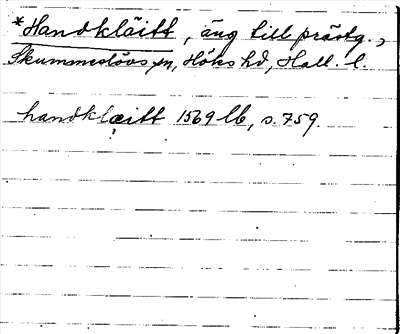 *Handkläitt, äng till prästg.,
Skummeslövs sn, Höks hd, Hall. l.
handklæitt 1569 lb, s. 759.